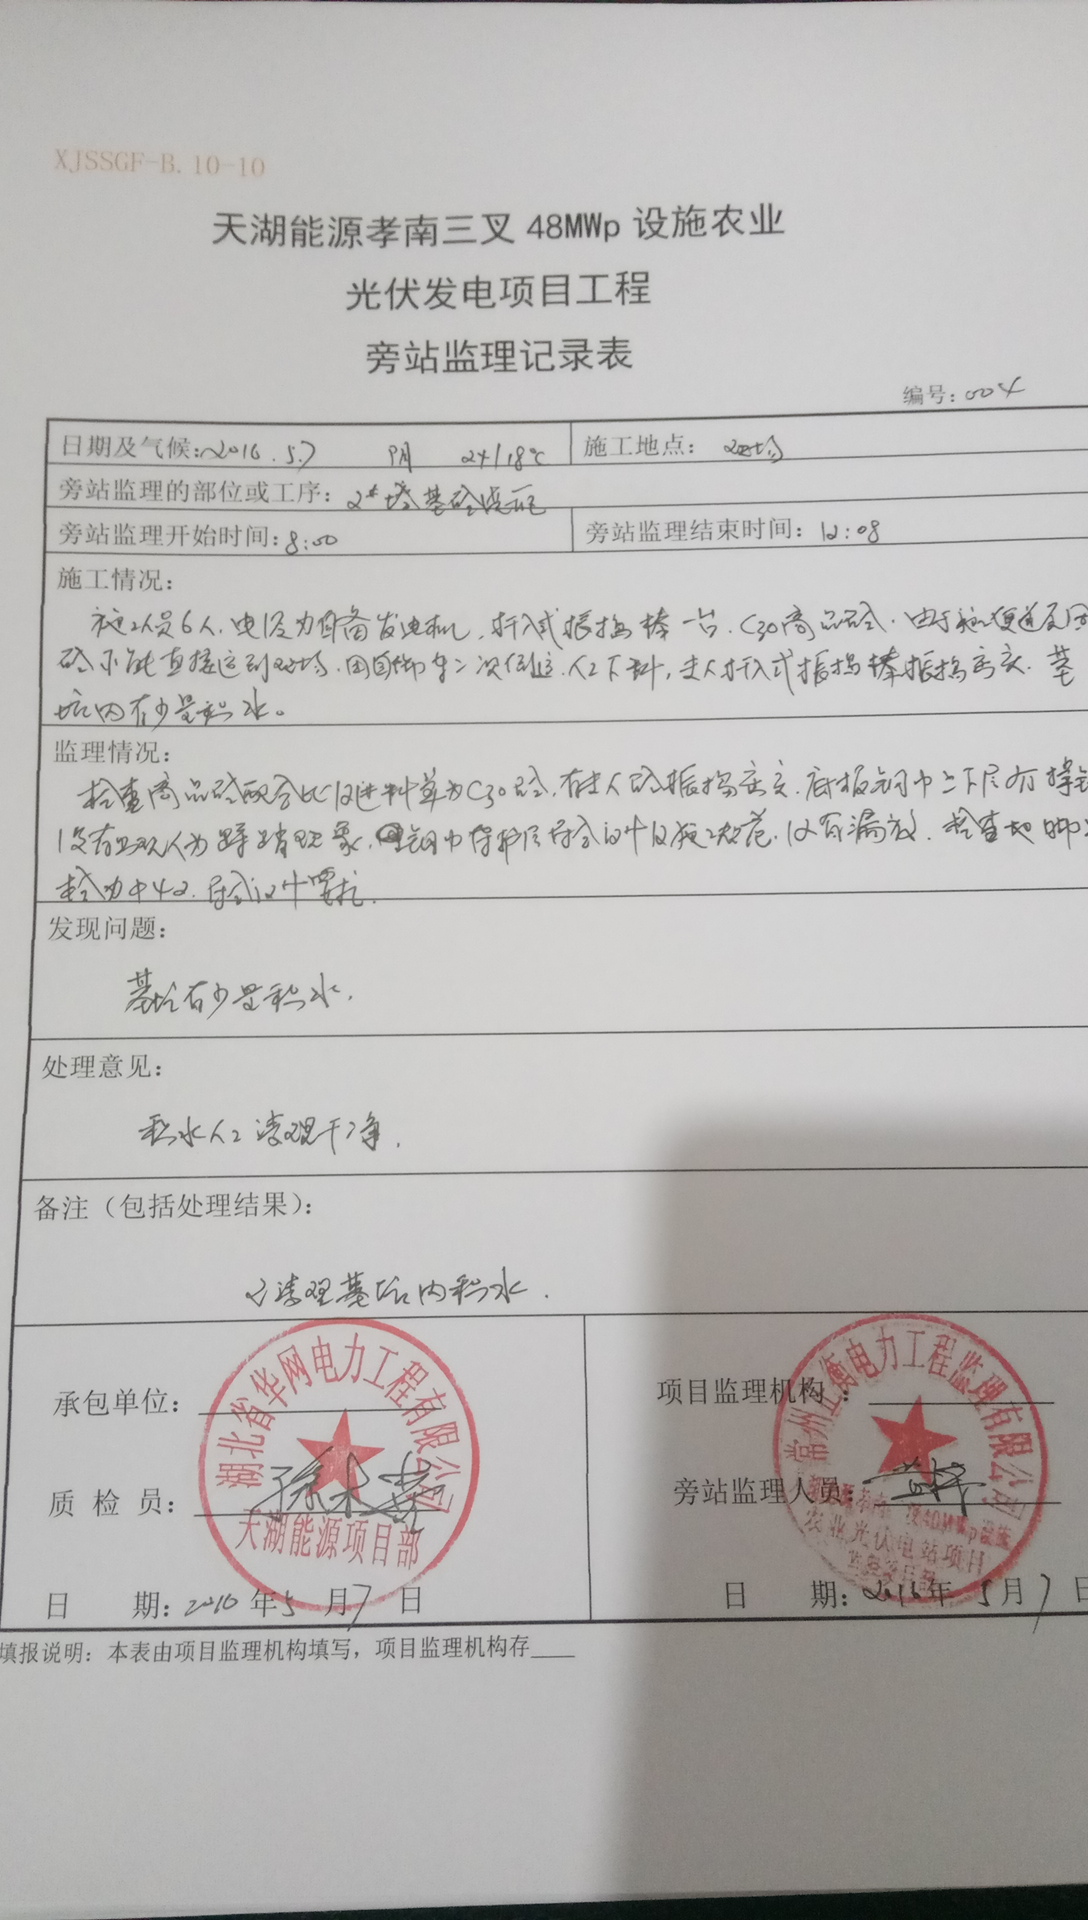 XJSSGF-B.10-10
天湖能源孝南三叉48MWp设施农业
光伏发电项目工程
旁站监理记录表
编号:004
日期及气候:2016.5.7 阴 24/18℃ 施工地点: 现场
旁站监理的部位或工序: 2#塔基砼浇
旁站监理开始时间:8:00 旁站监理结束时间:12:08
施工情况:
施工人员6人,电源为自备发电机,插入式振捣棒一台,C30商品砼,由于施工便道
砼不能直接运到现场,用自卸车二次倒运,人工下料,专人插入式振捣棒振捣密实.基
坑内有少量积水。
监理情况:
检查商品砼配合比及进料单为C30砼,有专人砼振捣密实.底板钢巾上下层有撑
没有出现人为踩踏现象,钢巾保护层符合设计及施工规范,没有漏放.检查地脚
栓为中42.符合设计要求.
发现问题:
基坑有少量积水.
处理意见:
积水人工清理干净.
备注(包括处理结果):
已清理基坑内积水.
承包单位: 项目监理机构:
湖北省华网电力工程有限公司
天湖能源项目部
常州正衡电力工程监理有限公司
农业光伏电站项目
质检员: 旁站监理人员
日 期:2016年5月7日 日 期:2016年5月7日
填报说明:本表由项目监理机构填写,项目监理机构存